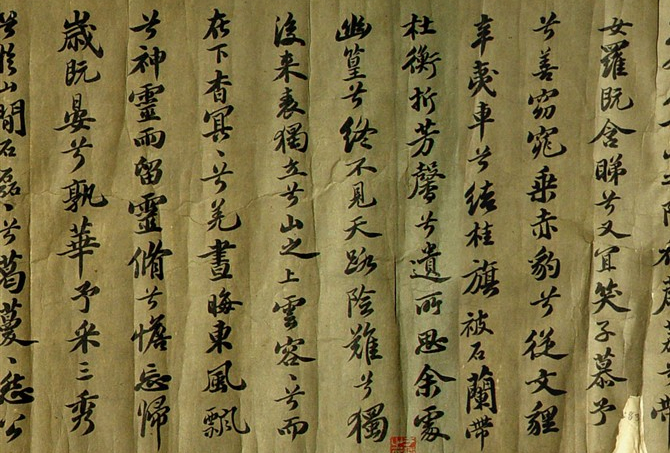 女羅既含睇兮又宜笑子慕予
兮善窈窕乘赤豹兮從文貍
辛夷車兮結桂旗被石蘭帶
杜衡折芳馨兮遺所思余處
幽篁兮終不見天路險難兮獨
後來表獨立兮山之上雲容〻兮而
在下杳冥〻兮羌晝晦東風飄
兮神靈雨留靈脩兮憺忘歸
歲既晏兮孰華予采三秀
兮於山間石磊〻兮葛蔓〻怨公